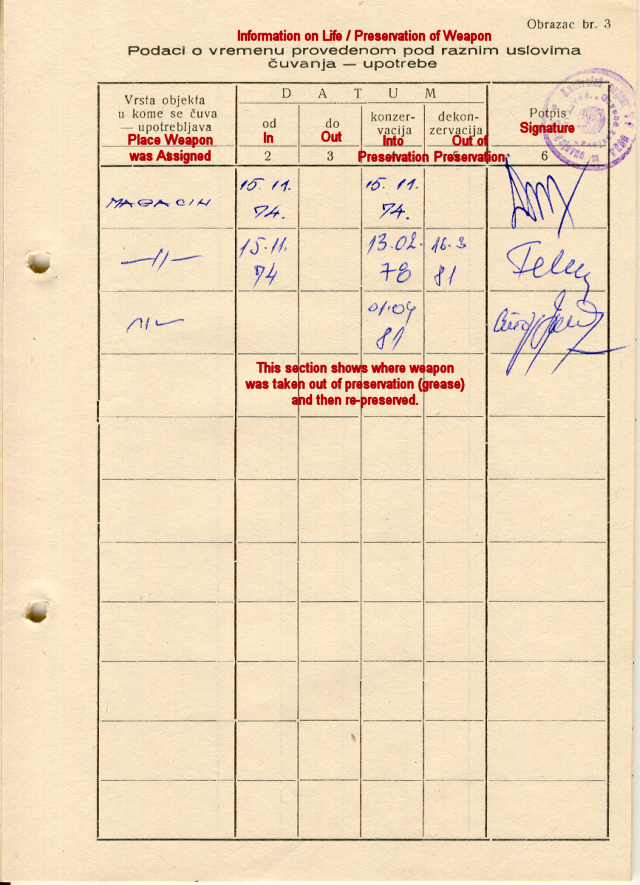 Obrazac br. 3
Information on Life / Preservation of Weapon
Podaci o vremenu provedenom pod raznim uslovima
čuvanja — upotrebe
Vrsta objekta
u kome se čuva
— upotrebljava
Place Weapon
was Assigned
D A T U M
od
In
2
do
Out
3
konzer-
vacija
Into
Preservation
dekon-
zervacija
Out of
Preservation
Potpis
Signature
6
MAGACIN
15. 11.
74.
15. 11.
74.
—11—
15.11.
74
13.02.
78
16.3
81
01.04
81
This section shows where weapon
was taken out of preservation (grease)
and then re-preserved.